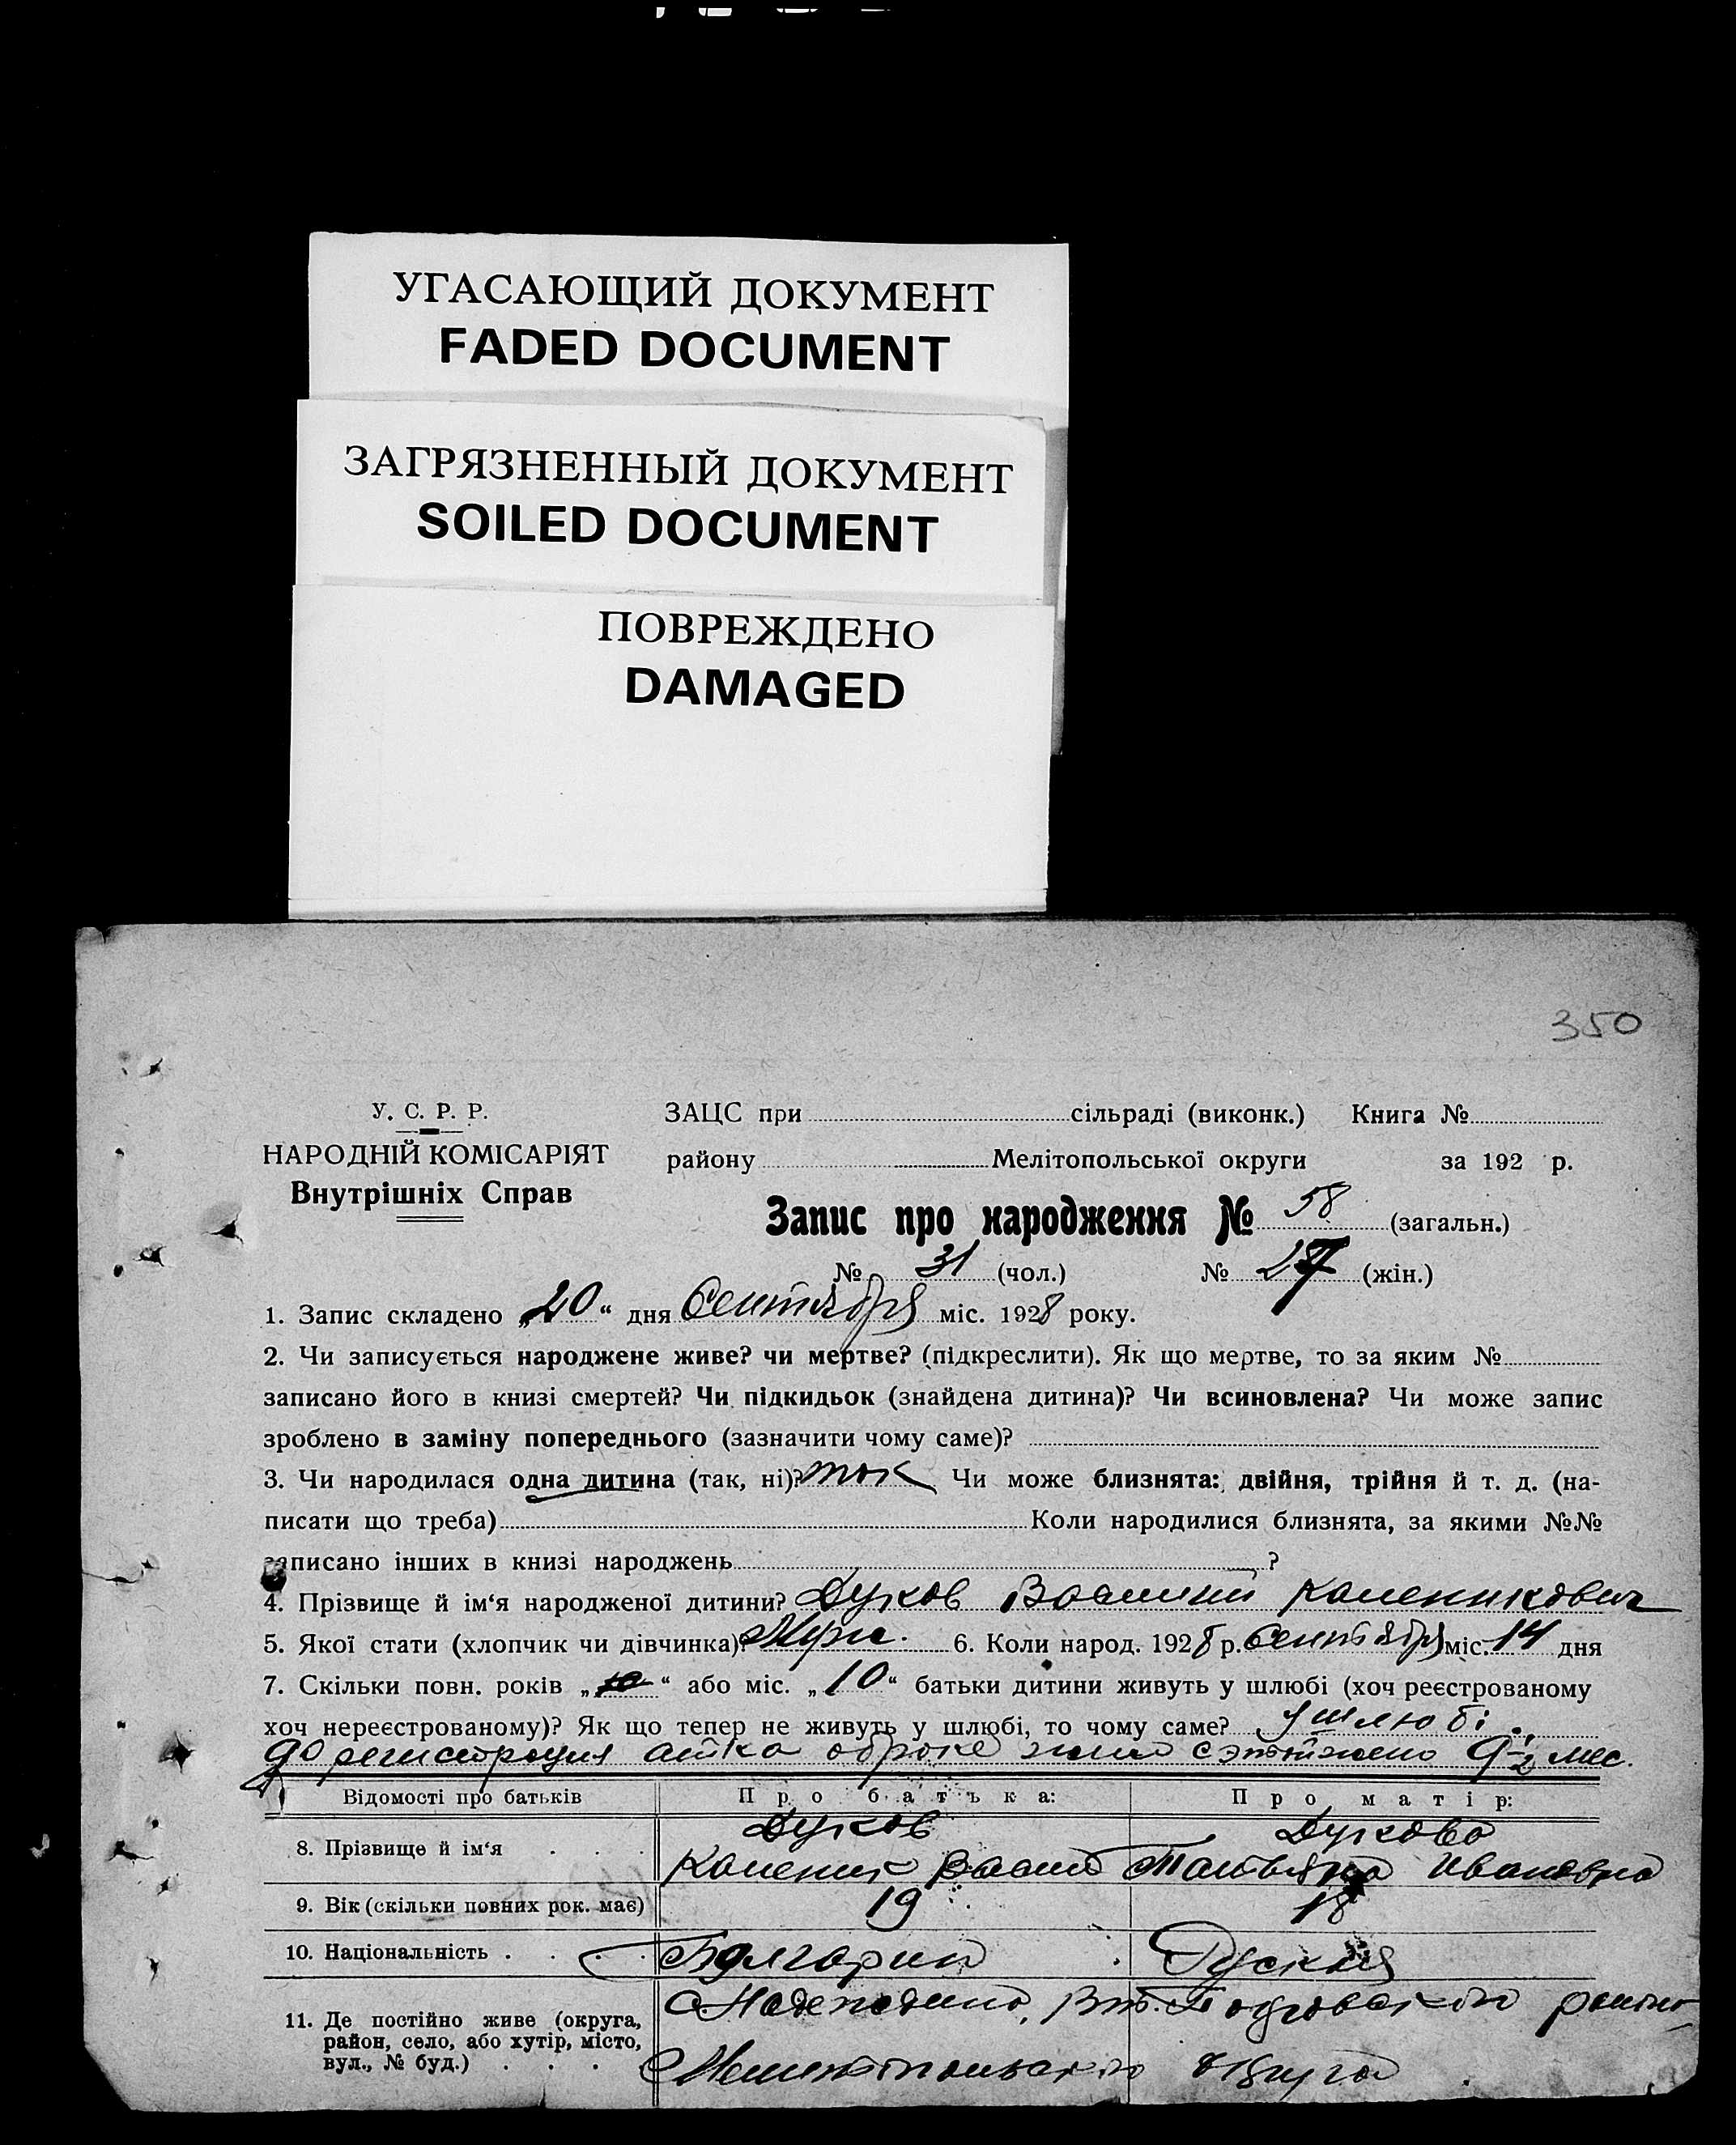 УГАСАЮЩИЙ ДОКУМЕНТ
FADED DOCUMENT
ЗАГРЯЗНЕННЫЙ ДОКУМЕНТ
SOILED DOCUMENT
ПОВРЕЖДЕНО
DAMAGED
350
У. С. Р. Р.
НАРОДНІЙ КОМІСАРІЯТ
Внутрішніх Справ
ЗАЦС при сільраді (виконк.) Книга №
району Мелітопольської округи за 192 р.
Запис про народження № 58 (загальн.)
№ 31 (чол.) № 27 (жін.)
1. Запис складено „20“ дня Сентября міс. 1928 року.
2. Чи записується народжене живе? чи мертве? (підкреслити). Як що мертве, то за яким №
записано його в книзі смертей? Чи підкидьок (знайдена дитина)? Чи всиновлена? Чи може запис
зроблено в заміну попереднього (зазначити чому саме)?
3. Чи народилася одна дитина (так, ні)? так Чи може близнята: двійня, трійня й т. д. (на-
писати що треба) Коли народилися близнята, за якими №№
записано інших в книзі народжень ?
4. Прізвище й ім‘я народженої дитини? Дуков Василий Каленикович
5. Якої стати (хлопчик чи дівчинка)? Муж. 6. Коли народ. 1928 р. Сентября міс. 14 дня
7. Скільки повн. років „ “ або міс. „10“ батьки дитини живуть у шлюбі (хоч реєстрованому
хоч нереєстрованому)? Як що тепер не живуть у шлюбі, то чому саме? у шлюбі.
до регистрация акта о браке 9½ мес.
Відомості про батьків Про батька: Про матір:
8. Прізвище й ім‘я . . . Дуков Дукова
Каленик Татьяна Ивановна
9. Вік (скільки повних рок. має) 19 18
10. Національність . . . Болгарин Руская
11. Де постійно живе (округа, район, село, або хутір, місто, вул., № буд.) . . . с.
Мелитопольского Округа